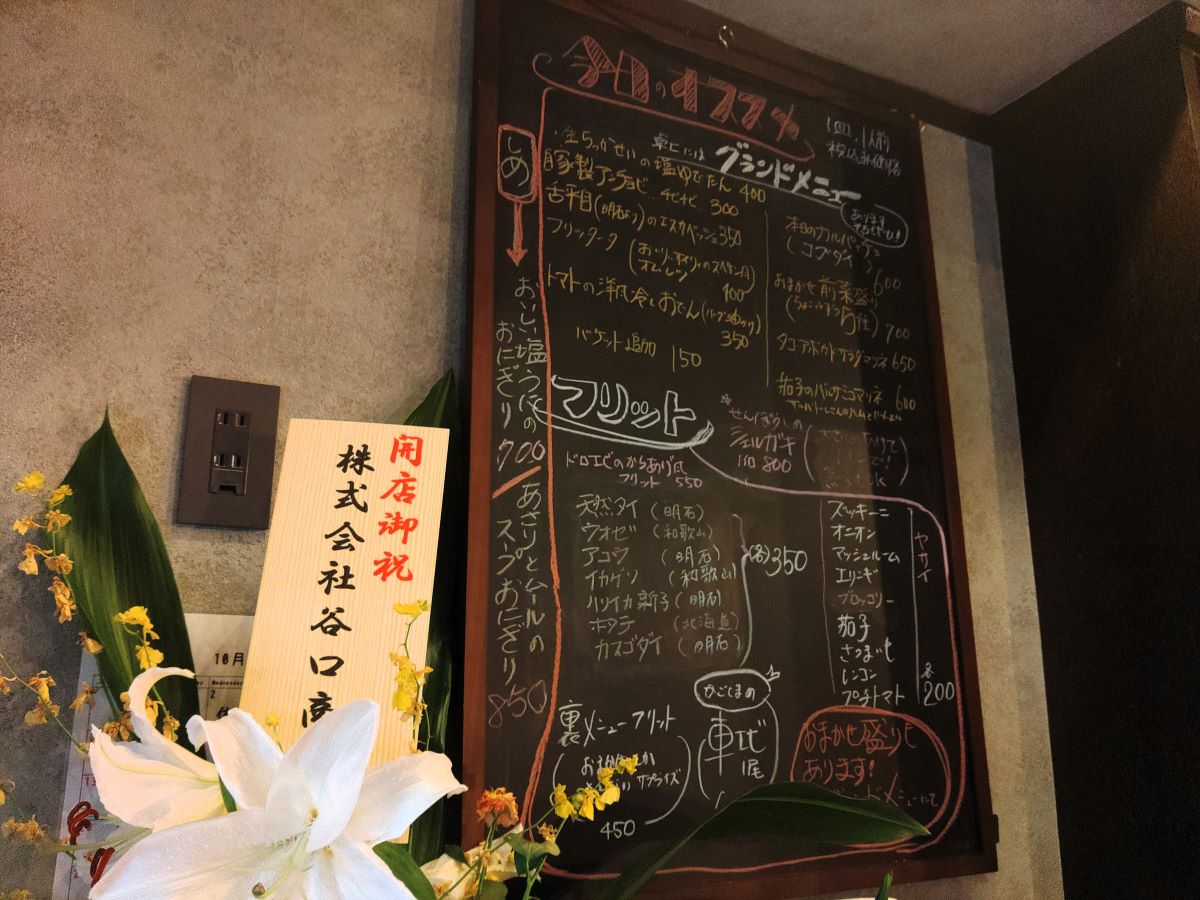 今日のオススメ
1皿、1人前
税込み価格
卓上には
グランドメニュー
あります
・生らっかせいの塩ゆでたん 400
豚製アンチョビ チビチビ 300
舌平目(明石より)のエスカベッシュ 350
フリッタータ
オムレツ
400
トマトの洋風冷しおでん
350
バケット追加 150
本日のカルパッチョ
(コブダイ)
600
おまかせ前菜盛り
5種) 700
タコアボカドサラダマリネ 650
茄子のバルサミコマリネ 600
しめ
おいしい塩うにの
おにぎり 700
あさりとムールの
スープおにぎり
850
フリット
せんぽうしの
シェルガキ
1コ 800
ドロエビのからあげ風
フリット 550
天然ダイ (明石)
ウオゼ (和歌山)
アコウ (明石)
イカゲソ (和歌山)
ハリイカ新子 (明石)
ホタテ (北海道)
カスゴダイ (明石)
(各)350
ズッキーニ
オニオン
マッシュルーム
エリンギ
ブロッコリー
茄子
さつまいも
レンコン
プチトマト
ヤサイ
各200
裏メニューフリット
サプライズ
450
かごしまの
車エビ
1尾
おまかせ盛りも
あります!
開店御祝
株式会社谷口商
10月
Wednesday
2